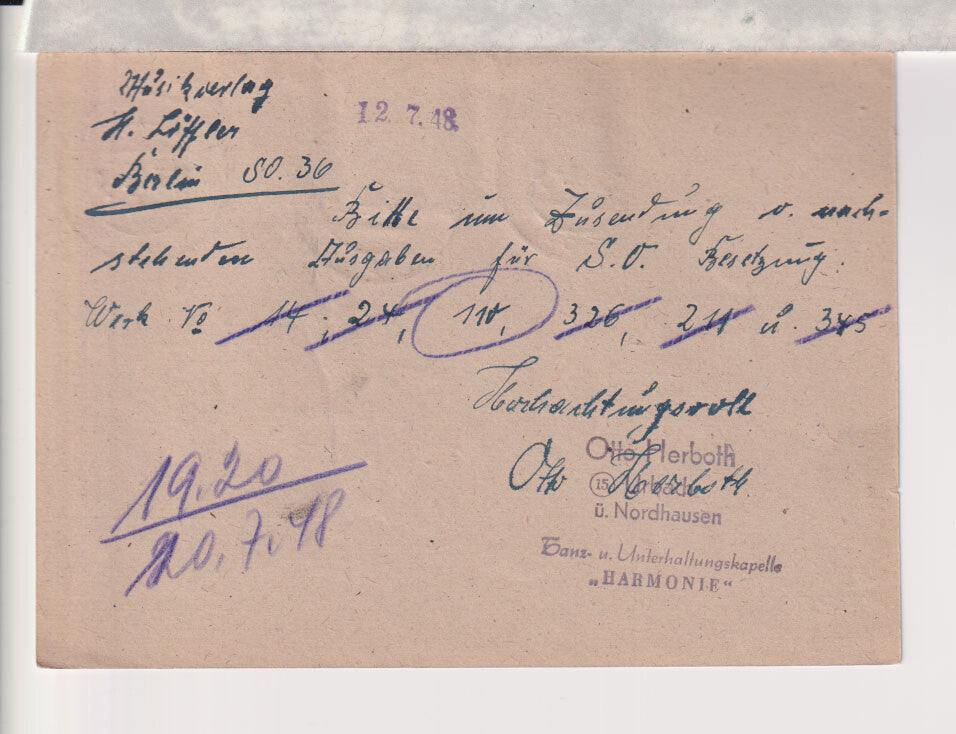 Musikverlag
H. Löffler
12. 7. 48.
Berlin SO. 36
Bitte um Zusendung v. nach-
stehenden Ausgaben für S.O. Besetzung.
Werk No 14, 24, 110, 326, 211 u. 345
Hochachtungsvoll
Otto Herboth
Otto Herboth
(15)
ü. Nordhausen
Tanz- u. Unterhaltungskapelle
„HARMONIE“
19.20
20.7.48